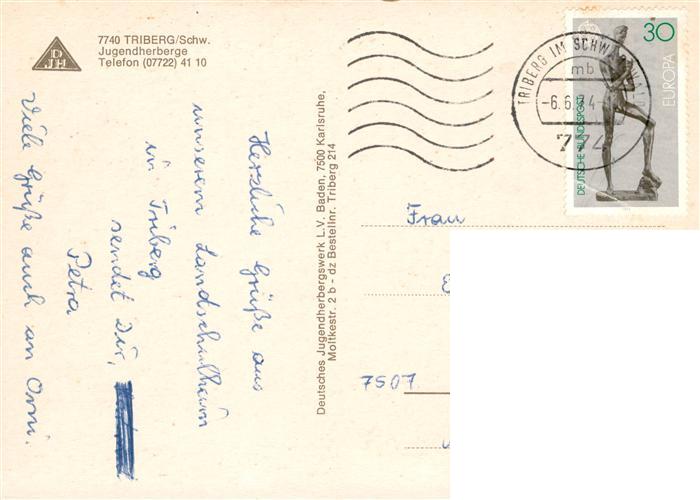 DJH
7740 TRIBERG/Schw.
Jugendherberge
Telefon (07722) 41 10
Herzliche Grüße aus
unserem Landschulheim
in Triberg
sendet Dir,
Petra
Viele Grüße auch an Omi.
Deutsches Jugendherbergswerk L.V. Baden, 7500 Karlsruhe,
Moltkestr. 2 b - dz Bestellnr. Triberg 214
TRIBERG IM SCHW
mb
-6.6. 4-
774
30
EUROPA
DEUTSCHE BUNDESPOST
Frau
7507